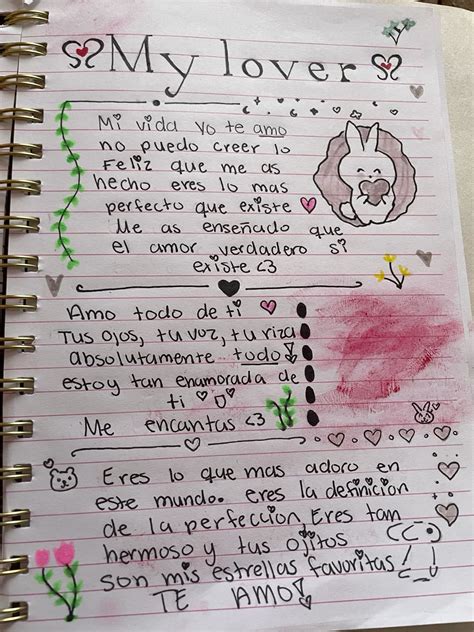 My lover
Mi vida yo te amo
no puedo creer lo
Feliz que me as
hecho eres lo mas
perfecto que existe
Me as enseñado que
el amor verdadero si?
existe <3
Amo todo de ti
Tus ojos, tu voz, tu riza
absolutamente todo
estoy tan enamorada de
ti
Me encantas <3
Eres lo que mas adoro en
este mundo. eres la definicion
de la perfeccion, Eres tan
hermoso y tus ojitos
son mis estrellas favoritas!
TE AMO!